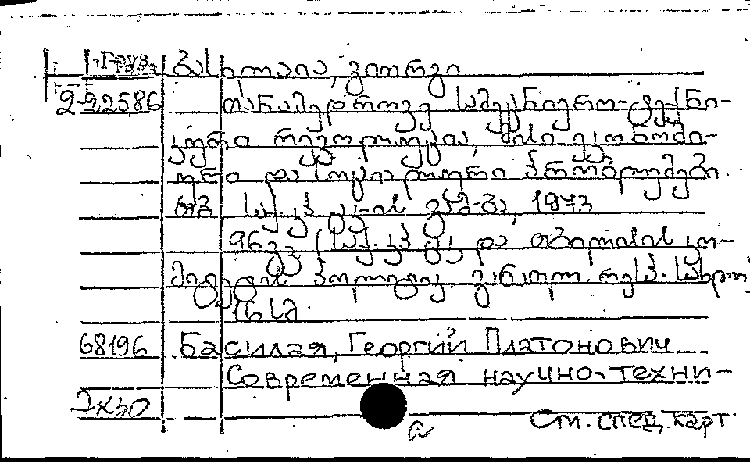 Груз.
ბასილაია, გიორგი
2-22586 თანამედროვე სამეცნიერო-ტექნი-
კური რევოლუცია, მისი ეკონომი-
ური და სოციალური პრობლემები.
თბ. საქ. კპ ცკ-ის გამ-ბა, 1973
96 გვ. (საქ. კპ ცკ და თბილისის კო-
მიტეტის პოლიტ. განათლ. რესპ. სახლი)
16 სმ.
68196 Басилая, Георгий Платонович
Современная научно-техни-
См. след. карт.